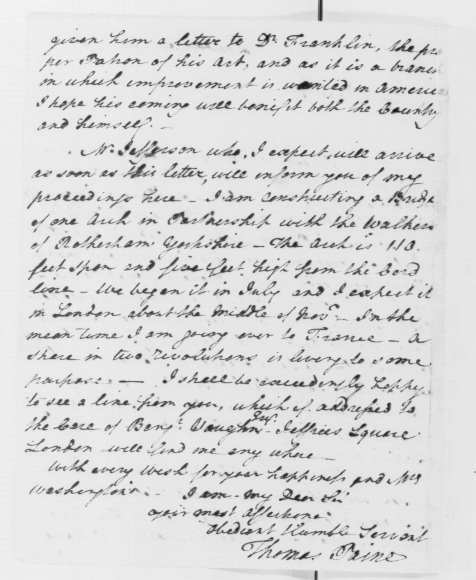 given him a letter to Dr Franklin, the pro
per Patron of his Art, and as it is a branch
in which improvement is wanted in America
I hope his coming will benefit both the Country
and himself. —
Mr Jefferson who, I expect, will arrive
as soon as this letter, will inform you of my
proceedings here — I am constructing a Bridge
of one Arch in Partnership with the Walkers
of Rotherham Yorkshire — The Arch is 110
feet span and five feet high from the Cord
line — We began it in July and I expect it
in London about the middle of Novr — In the
mean time I am going over to France — A
share in two revolutions is living to some
purpose — I shall be exceedingly happy
to see a line from you, which if addressed to
the Care of Benjn Vaughn Esqr Jefferies Square
London will find me any where —
With every wish for your happiness and Mrs
Washington's — I am — my Dear Sir
your most affectiona
Obedient Humble Servant
Thomas Paine